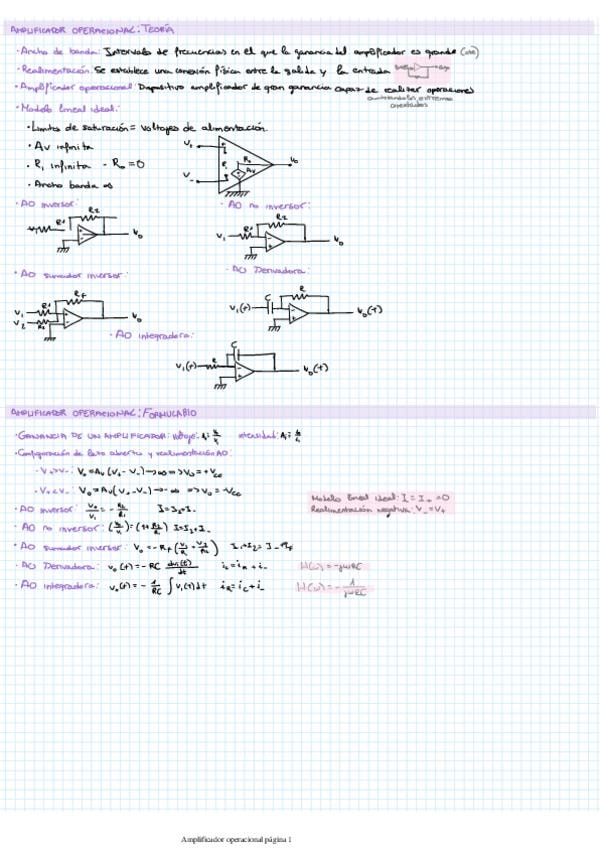 AMPLIFICADOR OPERACIONAL: TEORÍA
· Ancho de banda: Intervalo de frecuencias en el que la ganancia del amplificador es grande (cte)
· Realimentación: Se establece una conexión física entre la salida y la entrada
· Amplificador operacional: Dispositivo amplificador de gran ganancia capaz de realizar operaciones
· Modelo lineal ideal:
· Limites de saturación = Voltajes de alimentación.
· Av infinita
· Ri infinita - Ro = 0
· Ancho banda ∞
· AO inversor:
- AO no inversor:
R2
R1
Vo
R2
V1
R1
Vo
· AO sumador inversor:
- AO Derivadora:
Rf
V1
V2
Vo
R
C
V1(t)
Vo(t)
· AO integradora:
C
V1(t)
R
Vo(t)
AMPLIFICADOR OPERACIONAL: FORMULARIO
· GANANCIA DE UN AMPLIFICADOR: Voltaje:
intensidad:
· Configuración de lazo abierto y realimentación AO:
Vo = Av (V+ - V-) → ∞ => Vo = +Vcc
Vo = Av (V+ - V-) → -∞ => Vo = -Vcc
Modelo lineal ideal: I- = I+ = 0
· AO inversor: Vo/V1 = - R2/R1
Realimentación negativa: V- = V+
· AO no inversor: (Vo/V1) = (1 + R2/R1)
· AO sumador inversor: Vo = -Rf (V1/R1 + V2/R2)
· AO Derivadora: vo(t) = - RC dvi(t)/dt ic = iR + i- H(ω) = -jωRC
· AO integradora: vo(t) = - 1/RC ∫ v1(t)dt iR = iC + i- H(ω) = - 1/jωRC
Amplificador operacional página 1